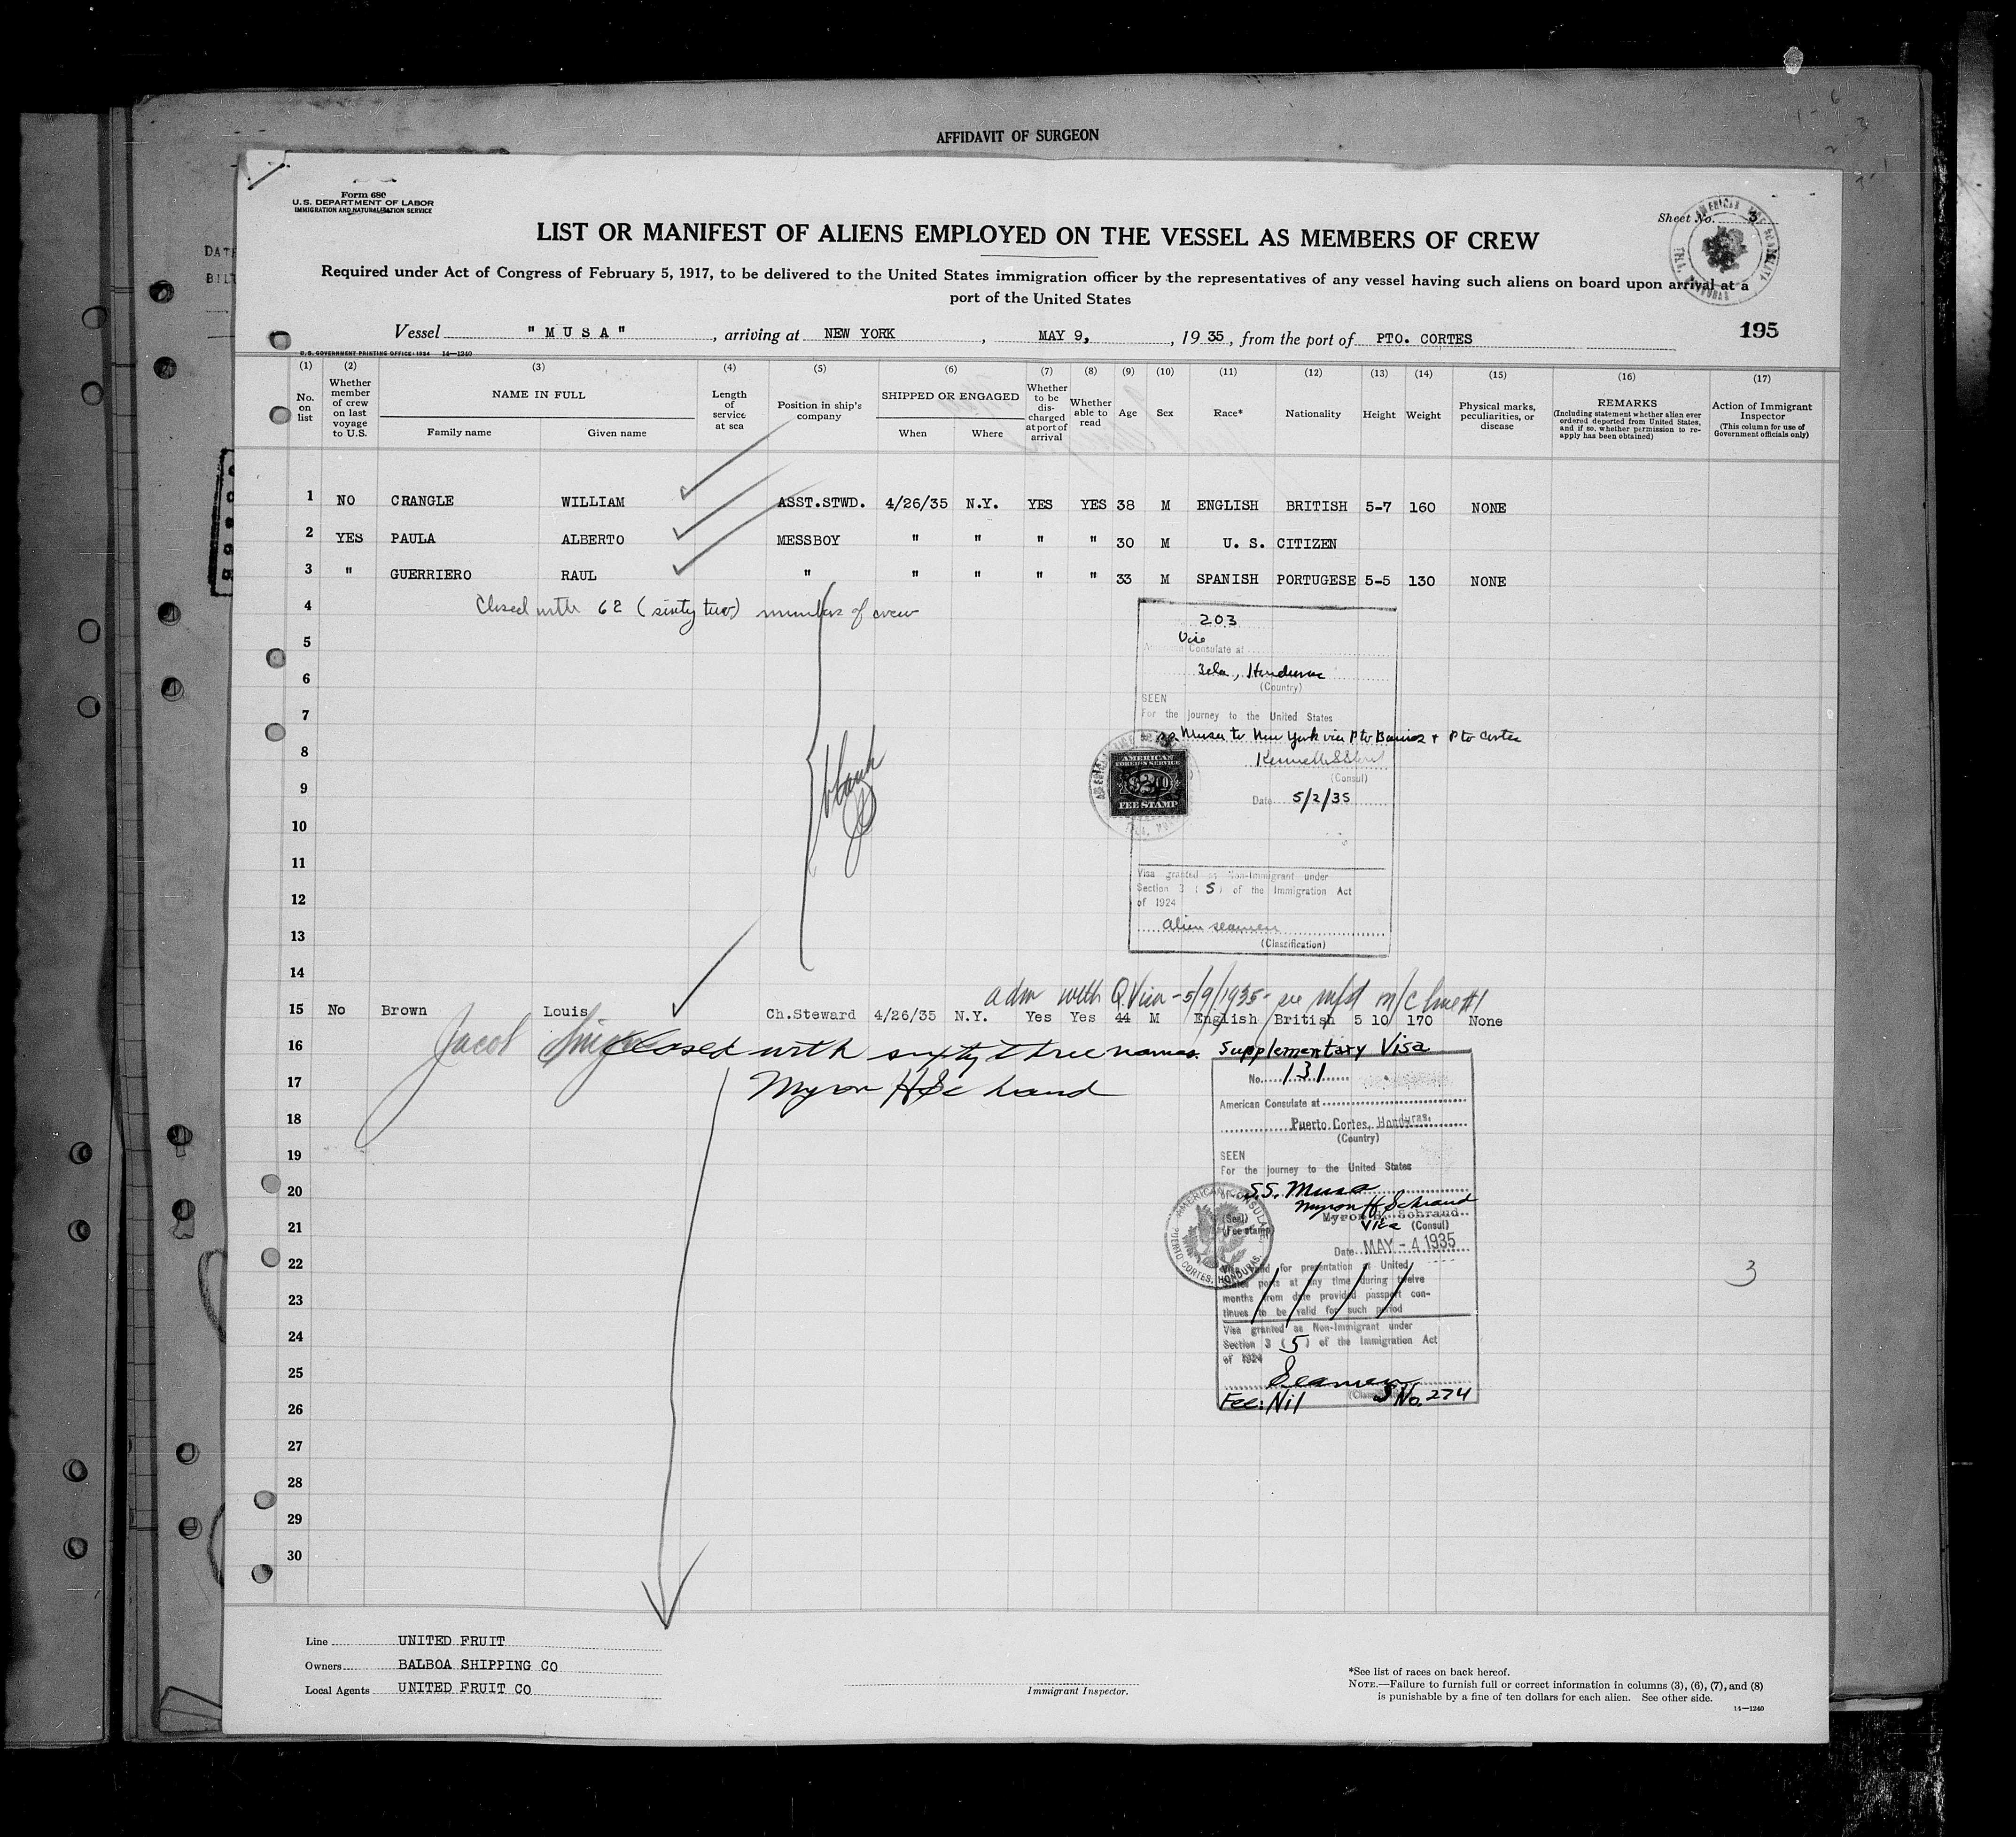 AFFIDAVIT OF SURGEON
Form 680
U.S. DEPARTMENT OF LABOR
IMMIGRATION AND NATURALIZATION SERVICE
Sheet No. 3
LIST OR MANIFEST OF ALIENS EMPLOYED ON THE VESSEL AS MEMBERS OF CREW
Required under Act of Congress of February 5, 1917, to be delivered to the United States immigration officer by the representatives of any vessel having such aliens on board upon arrival at a
port of the United States
195
Vessel "MUSA", arriving at NEW YORK, MAY 9, 1935, from the port of PTO. CORTES
U.S. GOVERNMENT PRINTING OFFICE: 1934 14—1240
(1) (2) (3) (4) (5) (6) (7) (8) (9) (10) (11) (12) (13) (14) (15) (16) (17)
No. on list
Whether member of crew on last voyage to U.S.
NAME IN FULL
Family name Given name
Length of service at sea
Position in ship's company
SHIPPED OR ENGAGED
When Where
Whether to be discharged at port of arrival
Whether able to read
Age
Sex
Race*
Nationality
Height
Weight
Physical marks, peculiarities, or disease
REMARKS
(Including statement whether alien ever ordered deported from United States, and if so, whether permission to re-apply has been obtained)
Action of Immigrant Inspector
(This column for use of Government officials only)
1 NO CRANGLE WILLIAM ASST.STWD. 4/26/35 N.Y. YES YES 38 M ENGLISH BRITISH 5-7 160 NONE
2 YES PAULA ALBERTO MESSBOY " " " " 30 M U. S. CITIZEN
3 " GUERRIERO RAUL " " " " " 33 M SPANISH PORTUGESE 5-5 130 NONE
4 Closed with 62 (sixty two) members of crew
203
5
Vice
American Consulate at
6
Tela, Honduras
(Country)
SEEN
7 For the journey to the United States
ss Musa to New York via Pto Barrios & Pto Cortes
8
(Consul)
AMERICAN
FOREIGN SERVICE
$2.00
FEE STAMP
9
Date 5/2/35
blank
10
11
Visa granted as Non-Immigrant under
Section 3 (5) of the Immigration Act
of 1924
12
alien seamen
13
(Classification)
14
adm with Q. Visa - 5/9/1935 - see mfst m/c line #1
15 No Brown Louis Ch.Steward 4/26/35 N.Y. Yes Yes 44 M English British 5 10 170 None
16 Closed with sixty three names.
Jacob
Supplementary Visa
17 Myron H Schraud
No. 131
American Consulate at
18
Puerto Cortes, Honduras.
(Country)
19
SEEN
For the journey to the United States
20
S.S. Musa
Myron H Schraud
21
Myron H. Schraud
Vice (Consul)
(Seal)
(Fee stamp)
AMERICAN CONSULATE
PUERTO CORTES, HONDURAS.
22
Date MAY - 4 1935
Visa valid for presentation at United
States ports at any time during twelve
23
months from date provided passport con-
tinues to be valid for such period
3
24
Visa granted as Non-Immigrant under
Section 3 (5) of the Immigration Act
of 1924
25
Seamen
(Classification)
26
Fee: Nil S No. 274
27
28
29
30
Line UNITED FRUIT
Owners BALBOA SHIPPING CO
Local Agents UNITED FRUIT CO
Immigrant Inspector.
*See list of races on back hereof.
NOTE.—Failure to furnish full or correct information in columns (3), (6), (7), and (8)
is punishable by a fine of ten dollars for each alien. See other side.
14—1240